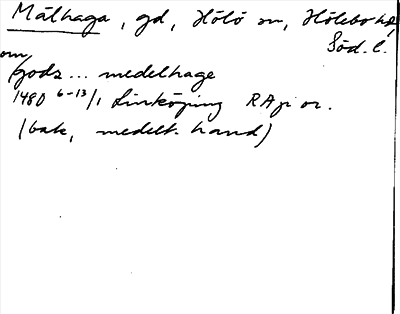 Målhaga, gd, Hölö sn, Hölebo hd,
Söd. l.
om
gods... medelhage
1480 6-13/1 Linköping RAp or.
(bak, medelt. hand)